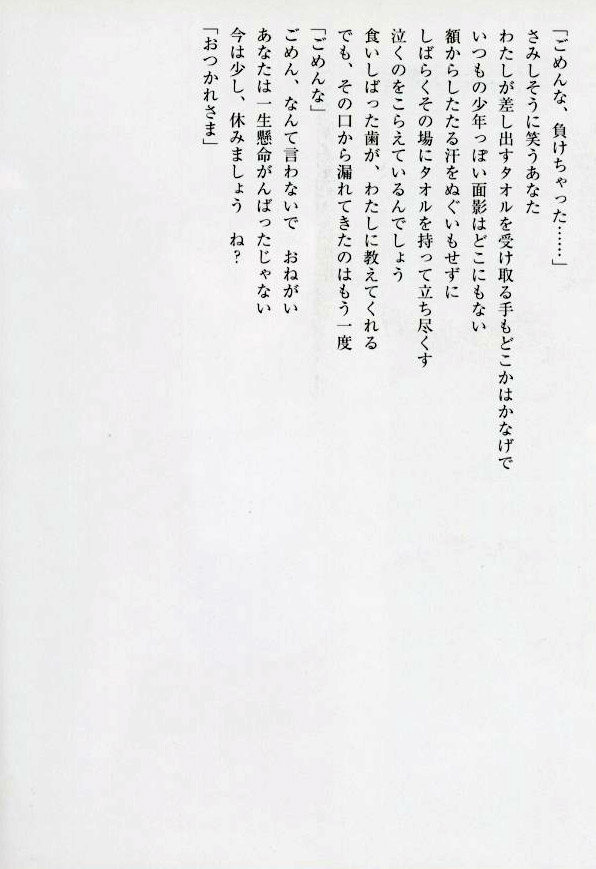 「ごめんな、負けちゃった……」
さみしそうに笑うあなた
わたしが差し出すタオルを受け取る手もどこかはかなげで
いつもの少年っぽい面影はどこにもない
額からしたたる汗をぬぐいもせずに
しばらくその場にタオルを持って立ち尽くす
泣くのをこらえているんでしょう
食いしばった歯が、わたしに教えてくれる
でも、その口から漏れてきたのはもう一度
「ごめんな」
ごめん、なんて言わないで　おねがい
あなたは一生懸命がんばったじゃない
今は少し、休みましょう　ね？
「おつかれさま」